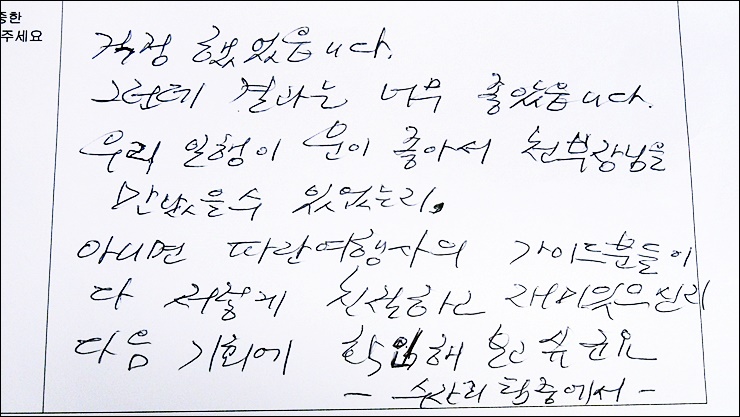 중한
주세요
걱정 했었읍니다.
그런데 결과는 너무 좋았읍니다.
우리 일행이 운이 좋아서 천부장님을
만났을수 있었는리,
아니면 파란여행사의 가이드분들이
다 저렇게 친절하고 재미있으신리
다음 기회에 확인해 보고 싶군요
- 수산리 탁중에서 -